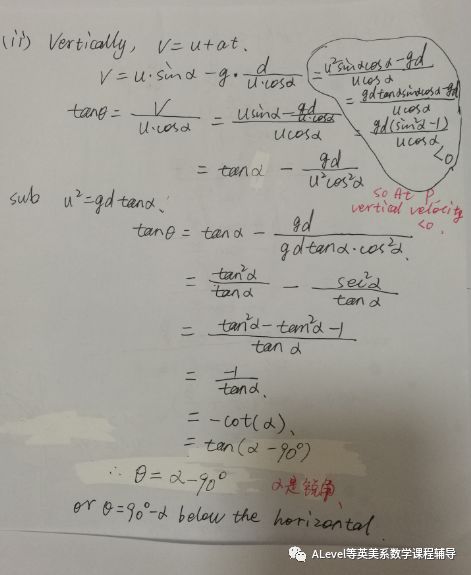 (ii) Vertically, V=u+at.
V=u·sinα-g·d/(u·cosα) =(u²sinαcosα-gd)/(ucosα)
=(gdtanαsinαcosα-gd)/(ucosα)
=gd(sin²α-1)/(ucosα)
<0
tanθ=V/(u·cosα) =(usinα-gd/(u·cosα))/(ucosα)
=tanα-gd/(u²cos²α)
so At P
vertical velocity
<0.
sub u²=gdtanα,
tanθ=tanα-gd/(gdtanα·cos²α).
=tan²α/tanα-sec²α/tanα
=(tan²α-tan²α-1)/tanα
=-1/tanα.
=-cot(α).
=tan(α-90°)
∴ θ=α-90° α是锐角.
or θ=90°-α below the horizontal.
ALevel等英美系数学课程辅导